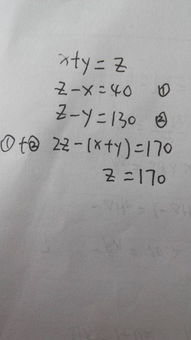 x+y=z
z-x=40 ①
z-y=130 ②
①+② 2z-(x+y)=170
z=170